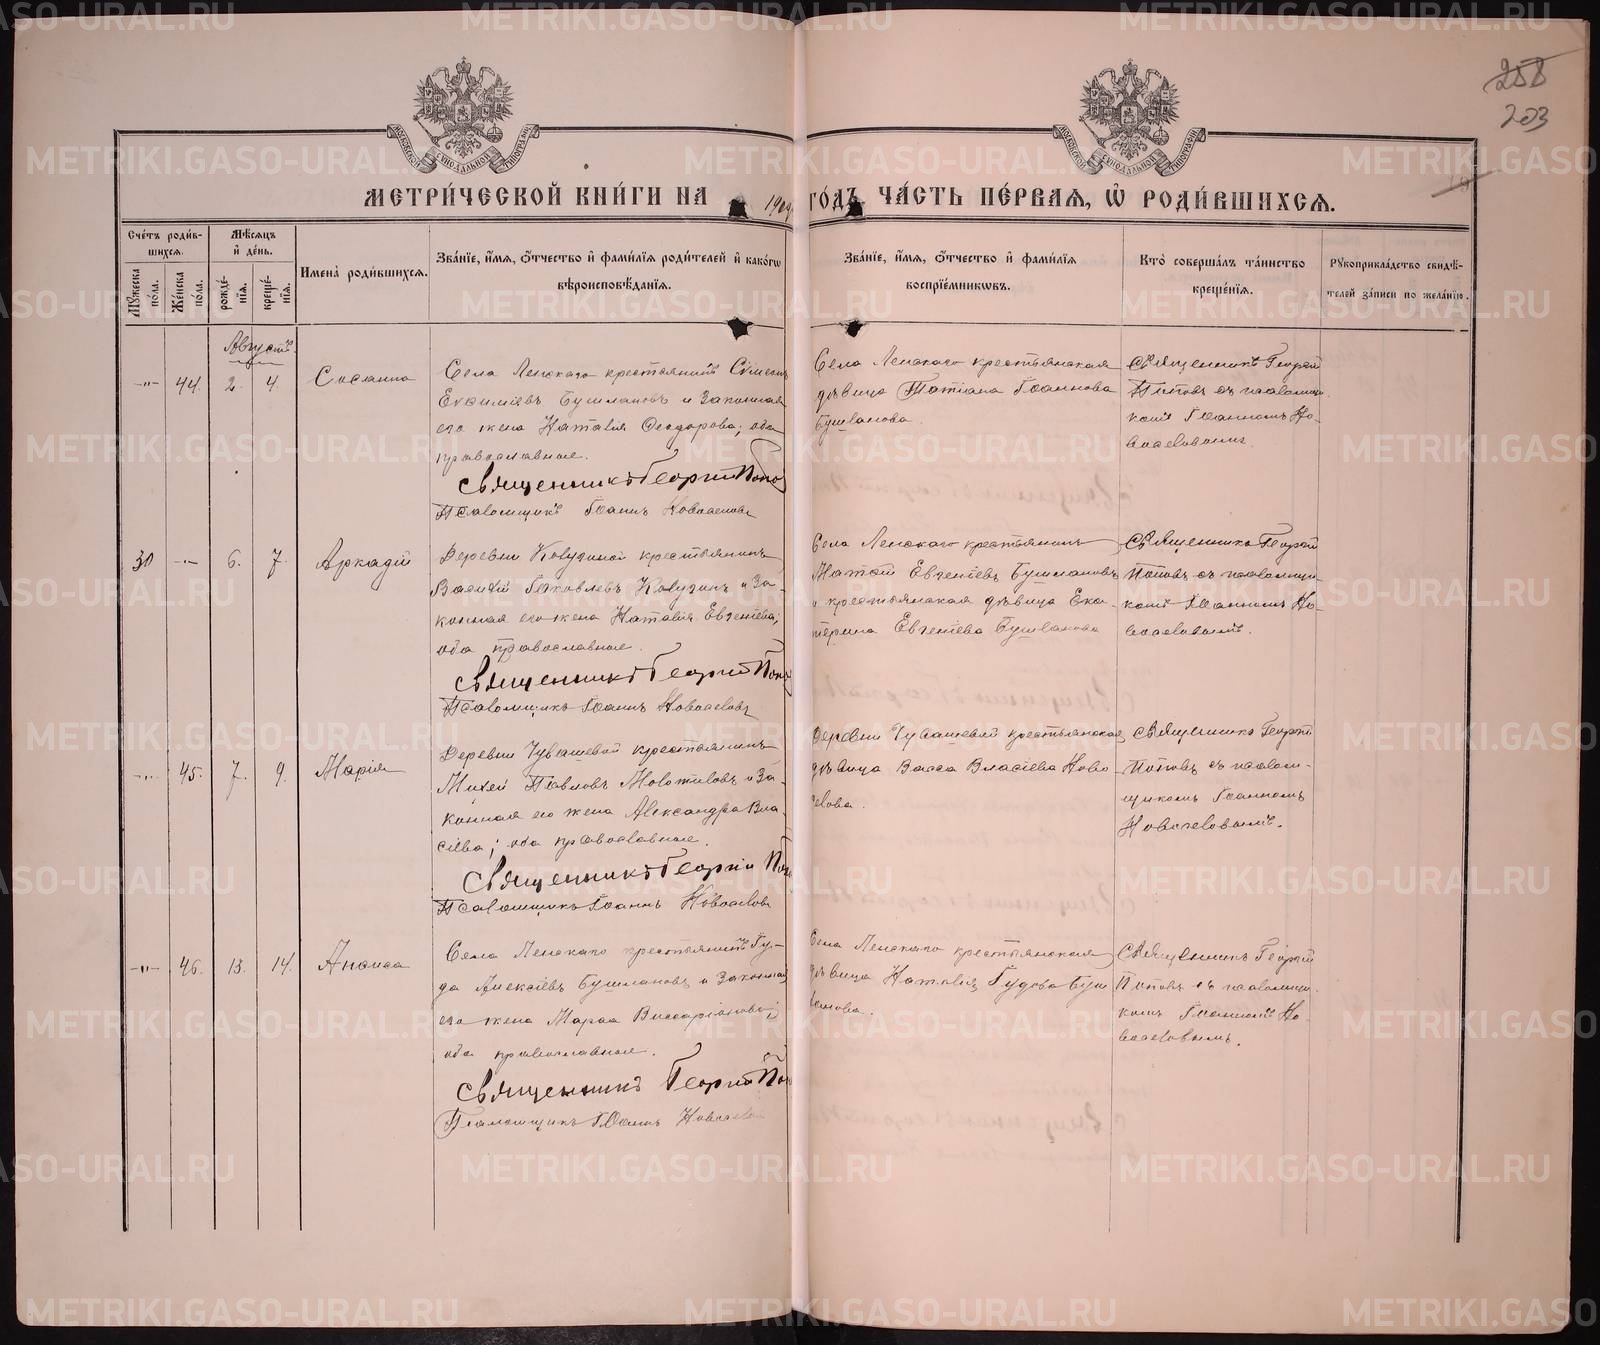 258
203
МЕТРИ́ЧЕСКОЙ КНИ́ГИ НА 1909 ГО́ДЪ ЧА́СТЬ ПЕ́РВАЯ, Ѡ РОДИ́ВШИХСЯ.
Сче́тъ роди́в-
шихся.
Му́жеска по́ла.
Же́нска по́ла.
Мѣ́сяцъ
и де́нь.
рожде́-
нїя.
креще́-
нїя.
Имена̀ роди́вшихся.
Зва́нїе, и́мя, о́тчество и фами́лїя роди́телей и како́гѡ
вѣроисповѣ́данїя.
Зва́нїе, и́мя, о́тчество и фами́лїя
воспрїе́мникѡвъ.
Кто̀ соверша́лъ та́инство
креще́нїя.
Рꙋкоприкла́дство свидѣ́-
телей за́писи по жела́нїю.
Августъ.
-"- 44. 2. 4. Сосанна
Села Ленскаго крестьянинъ Сѵмеонъ
Евѳиміевъ Бушлановъ и законная
его жена Наталія Ѳеодорова; оба
православные.
Священникъ Георгій Попо
Псаломщикъ Іоаннъ Новоселовъ
Села Ленскаго крестьянская
дѣвица Татіана Іоаннова
Бушланова.
Священникъ Георгій
Поповъ съ псаломщи-
комъ Іоанномъ Но-
воселовымъ.
30 -"- 6. 7. Аркадій
Деревни Калугиной крестьянинъ
Василій Іаковлевъ Калугинъ и за-
конная его жена Наталія Евгеніева;
оба православные.
Священникъ Георгій Попо
Псаломщикъ Іоаннъ Новоселовъ
Села Ленскаго крестьянинъ
Евгеніевъ Бушлановъ
и крестьянская дѣвица Ека-
терина Евгеніева Бушланова
Священникъ Георгій
Поповъ съ псаломщи-
комъ Іоанномъ Но-
воселовымъ.
-"- 45. 7. 9. Марія
Деревни Чувашевой крестьянинъ
Михей Павловъ Молотиловъ и за-
конная его жена Александра Вла-
сіева; оба православные.
Священникъ Георгій По
Псаломщикъ Іоаннъ Новоселовъ
Деревни Чувашевой крестьянская
дѣвица Васса Власіева Ново-
селова.
Священникъ Георгій
Поповъ съ псалом-
щикомъ Іоанномъ
Новоселовымъ.
-"- 46. 13. 14. Анѳиса
Села Ленскаго крестьянинъ Гу-
да Алексіевъ Бушлановъ и законная
его жена Виссаріонова;
оба православные.
Священникъ Георгій По
Псаломщикъ Іоаннъ Новоселов
Села Ленскаго крестьянская
дѣвица Наталія Гудова Буш-
ланова.
Священникъ Георгій
Поповъ съ псаломщи-
комъ Іоанномъ Но-
воселовымъ.
METRIKI.GASO-URAL.RU